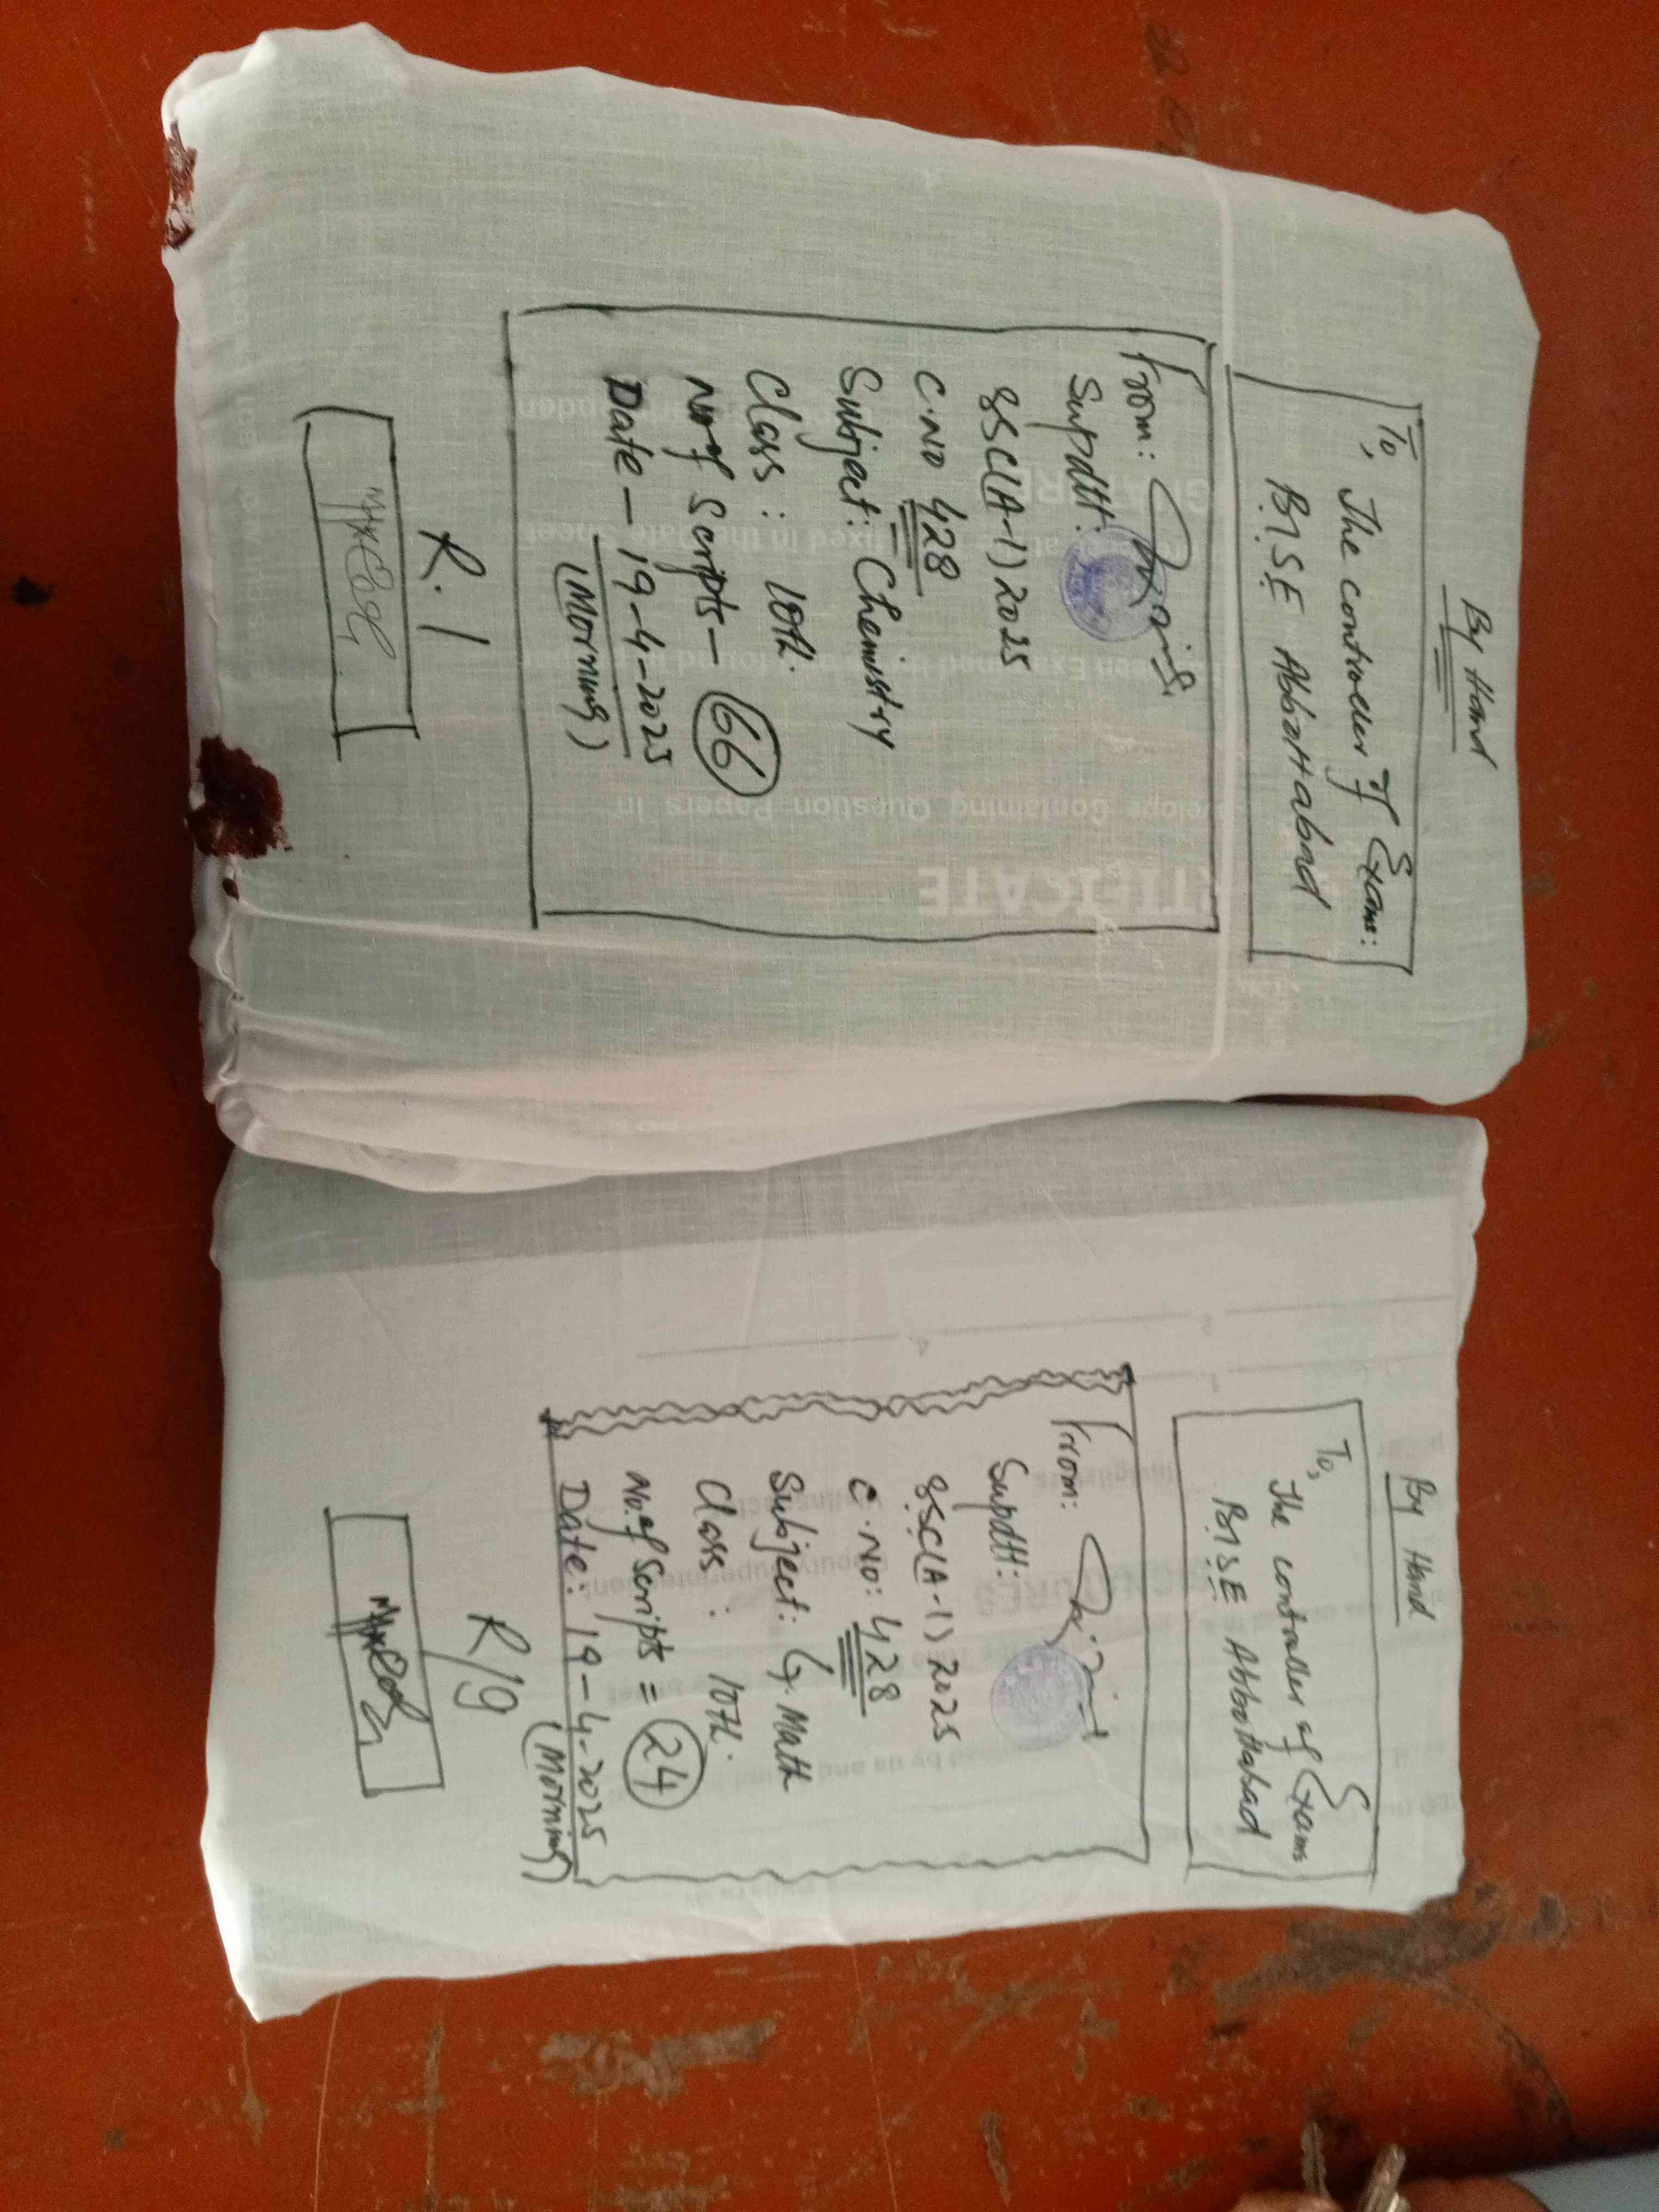 By Hand
To,
The controller of Exams:
BISE Abbottabad
From:
Supdtt:
SSC(A-1) 2025
C.No 428
Subject: Chemistry
Class: 10th.
No of Scripts- 66
Date - 19-4-2025
(Morning)
R.1
By Hand
To,
The controller of Exams
BISE Abbottabad
From:
Supdtt:
SSC(A-1) 2025
C.No: 428
Subject: G.Math
Class: 10th.
No. of Scripts = 24
Date: 19-4-2025
(Morning)
R/9